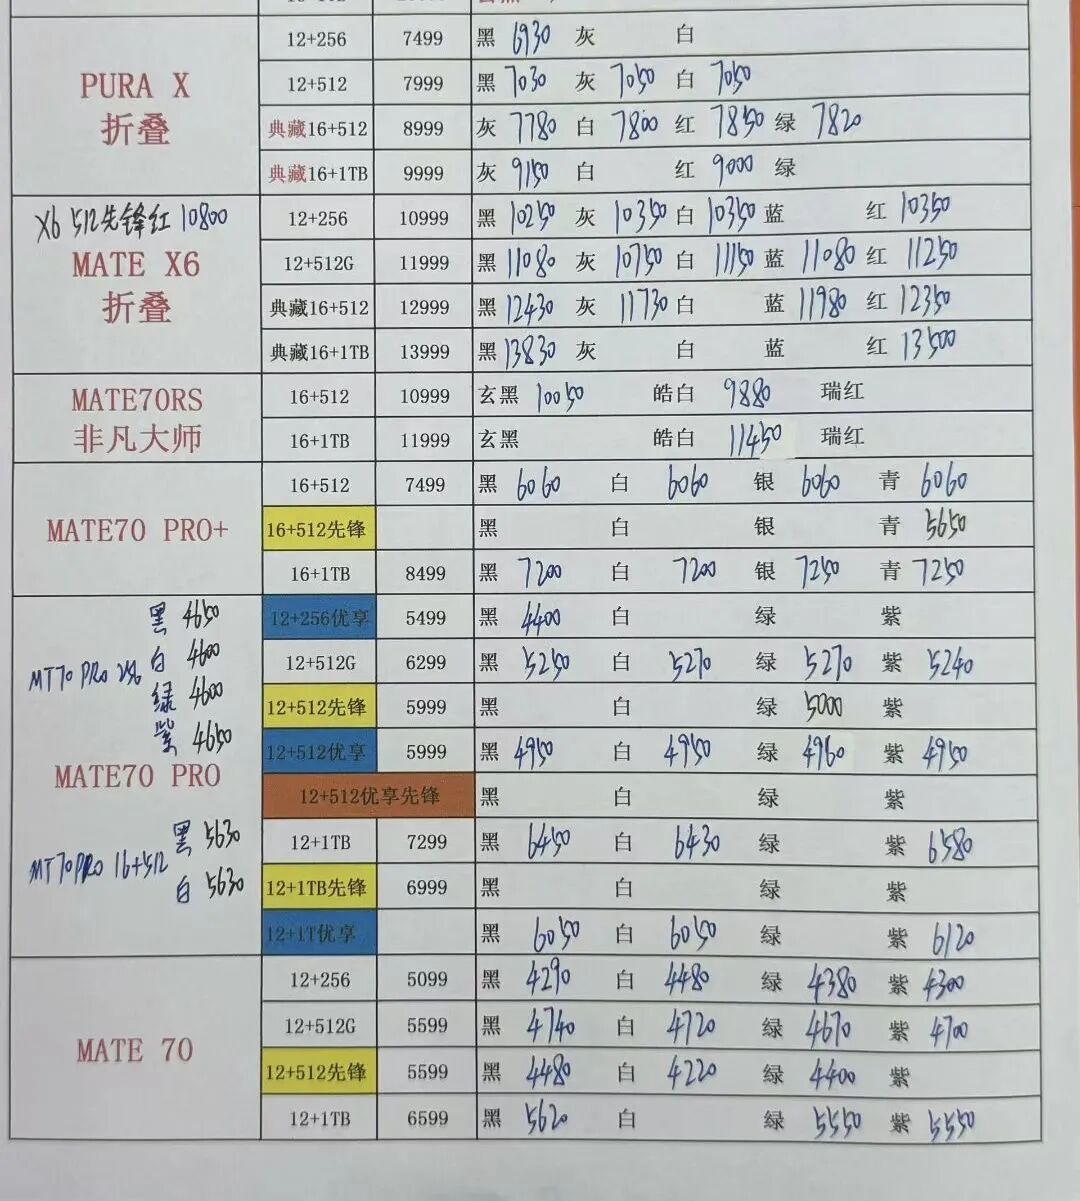 PURA X
折叠
12+256 7499 黑 6930 灰 白
12+512 7999 黑 7030 灰 7050 白 7050
典藏16+512 8999 灰 7780 白 7800 红 7850 绿 7820
典藏16+1TB 9999 灰 9150 白 红 9000 绿
X6 512先锋红 10800
MATE X6
折叠
12+256 10999 黑 10250 灰 10350 白 10350 蓝 红 10350
12+512G 11999 黑 11080 灰 10750 白 11150 蓝 11080 红 11250
典藏16+512 12999 黑 12430 灰 11730 白 蓝 11980 红 12350
典藏16+1TB 13999 黑 13830 灰 白 蓝 红 13500
MATE70RS
非凡大师
16+512 10999 玄黑 10050 皓白 9880 瑞红
16+1TB 11999 玄黑 皓白 11450 瑞红
MATE70 PRO+
16+512 7499 黑 6060 白 6060 银 6060 青 6060
16+512先锋 黑 白 银 青 5650
16+1TB 8499 黑 7200 白 7200 银 7250 青 7250
MT70 PRO 256
黑 4650
白 4600
绿 4600
紫 4650
MATE70 PRO
MT70PRO 16+512
黑 5630
白 5630
12+256优享 5499 黑 4400 白 绿 紫
12+512G 6299 黑 5250 白 5270 绿 5270 紫 5240
12+512先锋 5999 黑 白 绿 5000 紫
12+512优享 5999 黑 4950 白 4950 绿 4960 紫 4950
12+512优享先锋 黑 白 绿 紫
12+1TB 7299 黑 6450 白 6430 绿 紫 6580
12+1TB先锋 6999 黑 白 绿 紫
12+1T优享 黑 6050 白 6050 绿 紫 6120
MATE 70
12+256 5099 黑 4290 白 4480 绿 4380 紫 4300
12+512G 5599 黑 4740 白 4720 绿 4670 紫 4700
12+512先锋 5599 黑 4480 白 4220 绿 4400 紫
12+1TB 6599 黑 5620 白 绿 5550 紫 5550